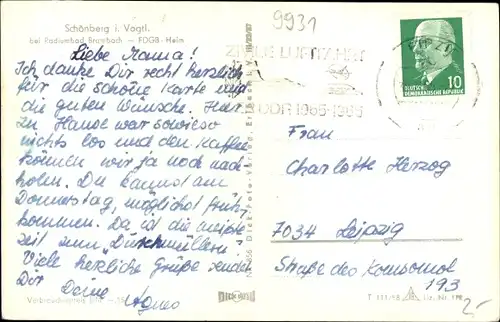 Schönberg i. Vogtl.
bei Radiumbad Brambach — FDGB-Heim
9931
Liebe Mama!
Ich danke Dir recht herzlich
für die schöne Karte und
die guten Wünsche. Hier
zu Hause war sowieso
nichts los und den Kaffee
können wir ja noch nach
holen. Du kannst am
Donnerstag, möglichst früh,
kommen. Da ist die
zeit zum "Durchmüllern"
Viele herzliche Grüße sendet
Dir Deine
Agnes
ZIVILE LUFTFAHRT
DDR 1955-1965
10
DEUTSCHE
DEMOKRATISCHE REPUBLIK
Frau
Charlotte Herzog
7034 Leipzig
Straße des Komsomol
193
DICK
T 111/58
2,-